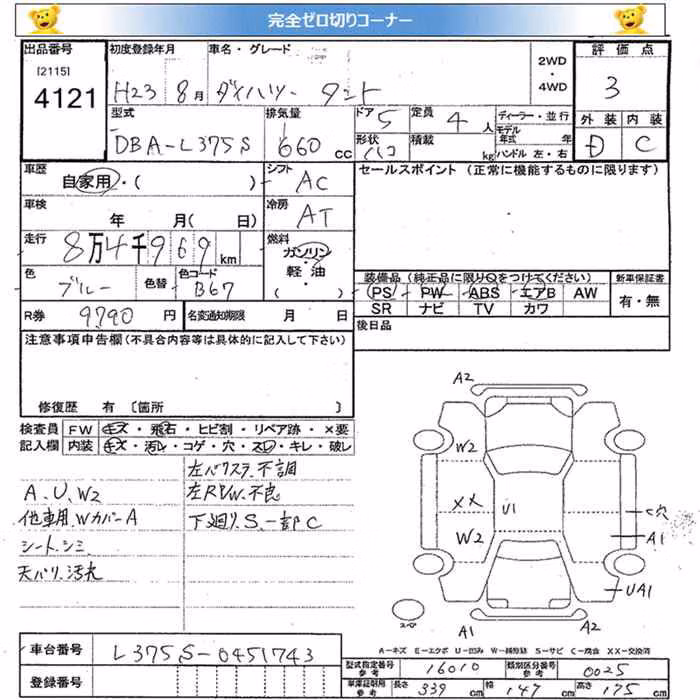 完全ゼロ切りコーナー
出品番号 初度登録年月 車名・グレード 2WD・4WD 評価点
[2115]
4121 H23 8月 ダイハツ タント 3
型式 排気量 ドア 5 定員 4人 ディーラー・並行 外装 内装
DBA-L375S 660cc 形状 ハコ 積載 kg モデル年式 年 ハンドル 左・右 D C
車歴 自家用・( ) シフト AC セールスポイント (正常に機能するものに限ります)
車検 年 月( 日) 冷房 AT
走行 8万4千969km 燃料 ガソリン・軽油・( )
色 ブルー 色替 色コード B67 装備品 (純正品に限り○をつけてください) 新車保証書
PS PW ABS エアB AW 有・無
R券 9790円 名変通知期限 月 日 SR ナビ TV カワ
注意事項申告欄(不具合内容等は具体的に記入して下さい) 後日品
修復歴 有 [箇所 ]
検査員 FW キズ・飛石・ヒビ割・リペア跡・×要
記入欄 内装 キズ・汚レ・コゲ・穴・スレ・キレ・破レ
左バクステ.不調
A、U、W2 左RP/W.不良
他車用.Wカバー A 下廻り.S.一部C
シート.シミ
天バリ.汚れ
A2
W2
XX U1 C穴
W2 A1
UA1
A1 A2
スペア
A-キズ E-エクボ U-凹み W-補修跡 S-サビ C-腐食 XX-交換済
車台番号 L375S-0451743 型式指定番号 参考 16010 類別区分番号 参考 0025
登録番号 車庫証明用 参考 長さ 339 幅 147 高さ 175 cm